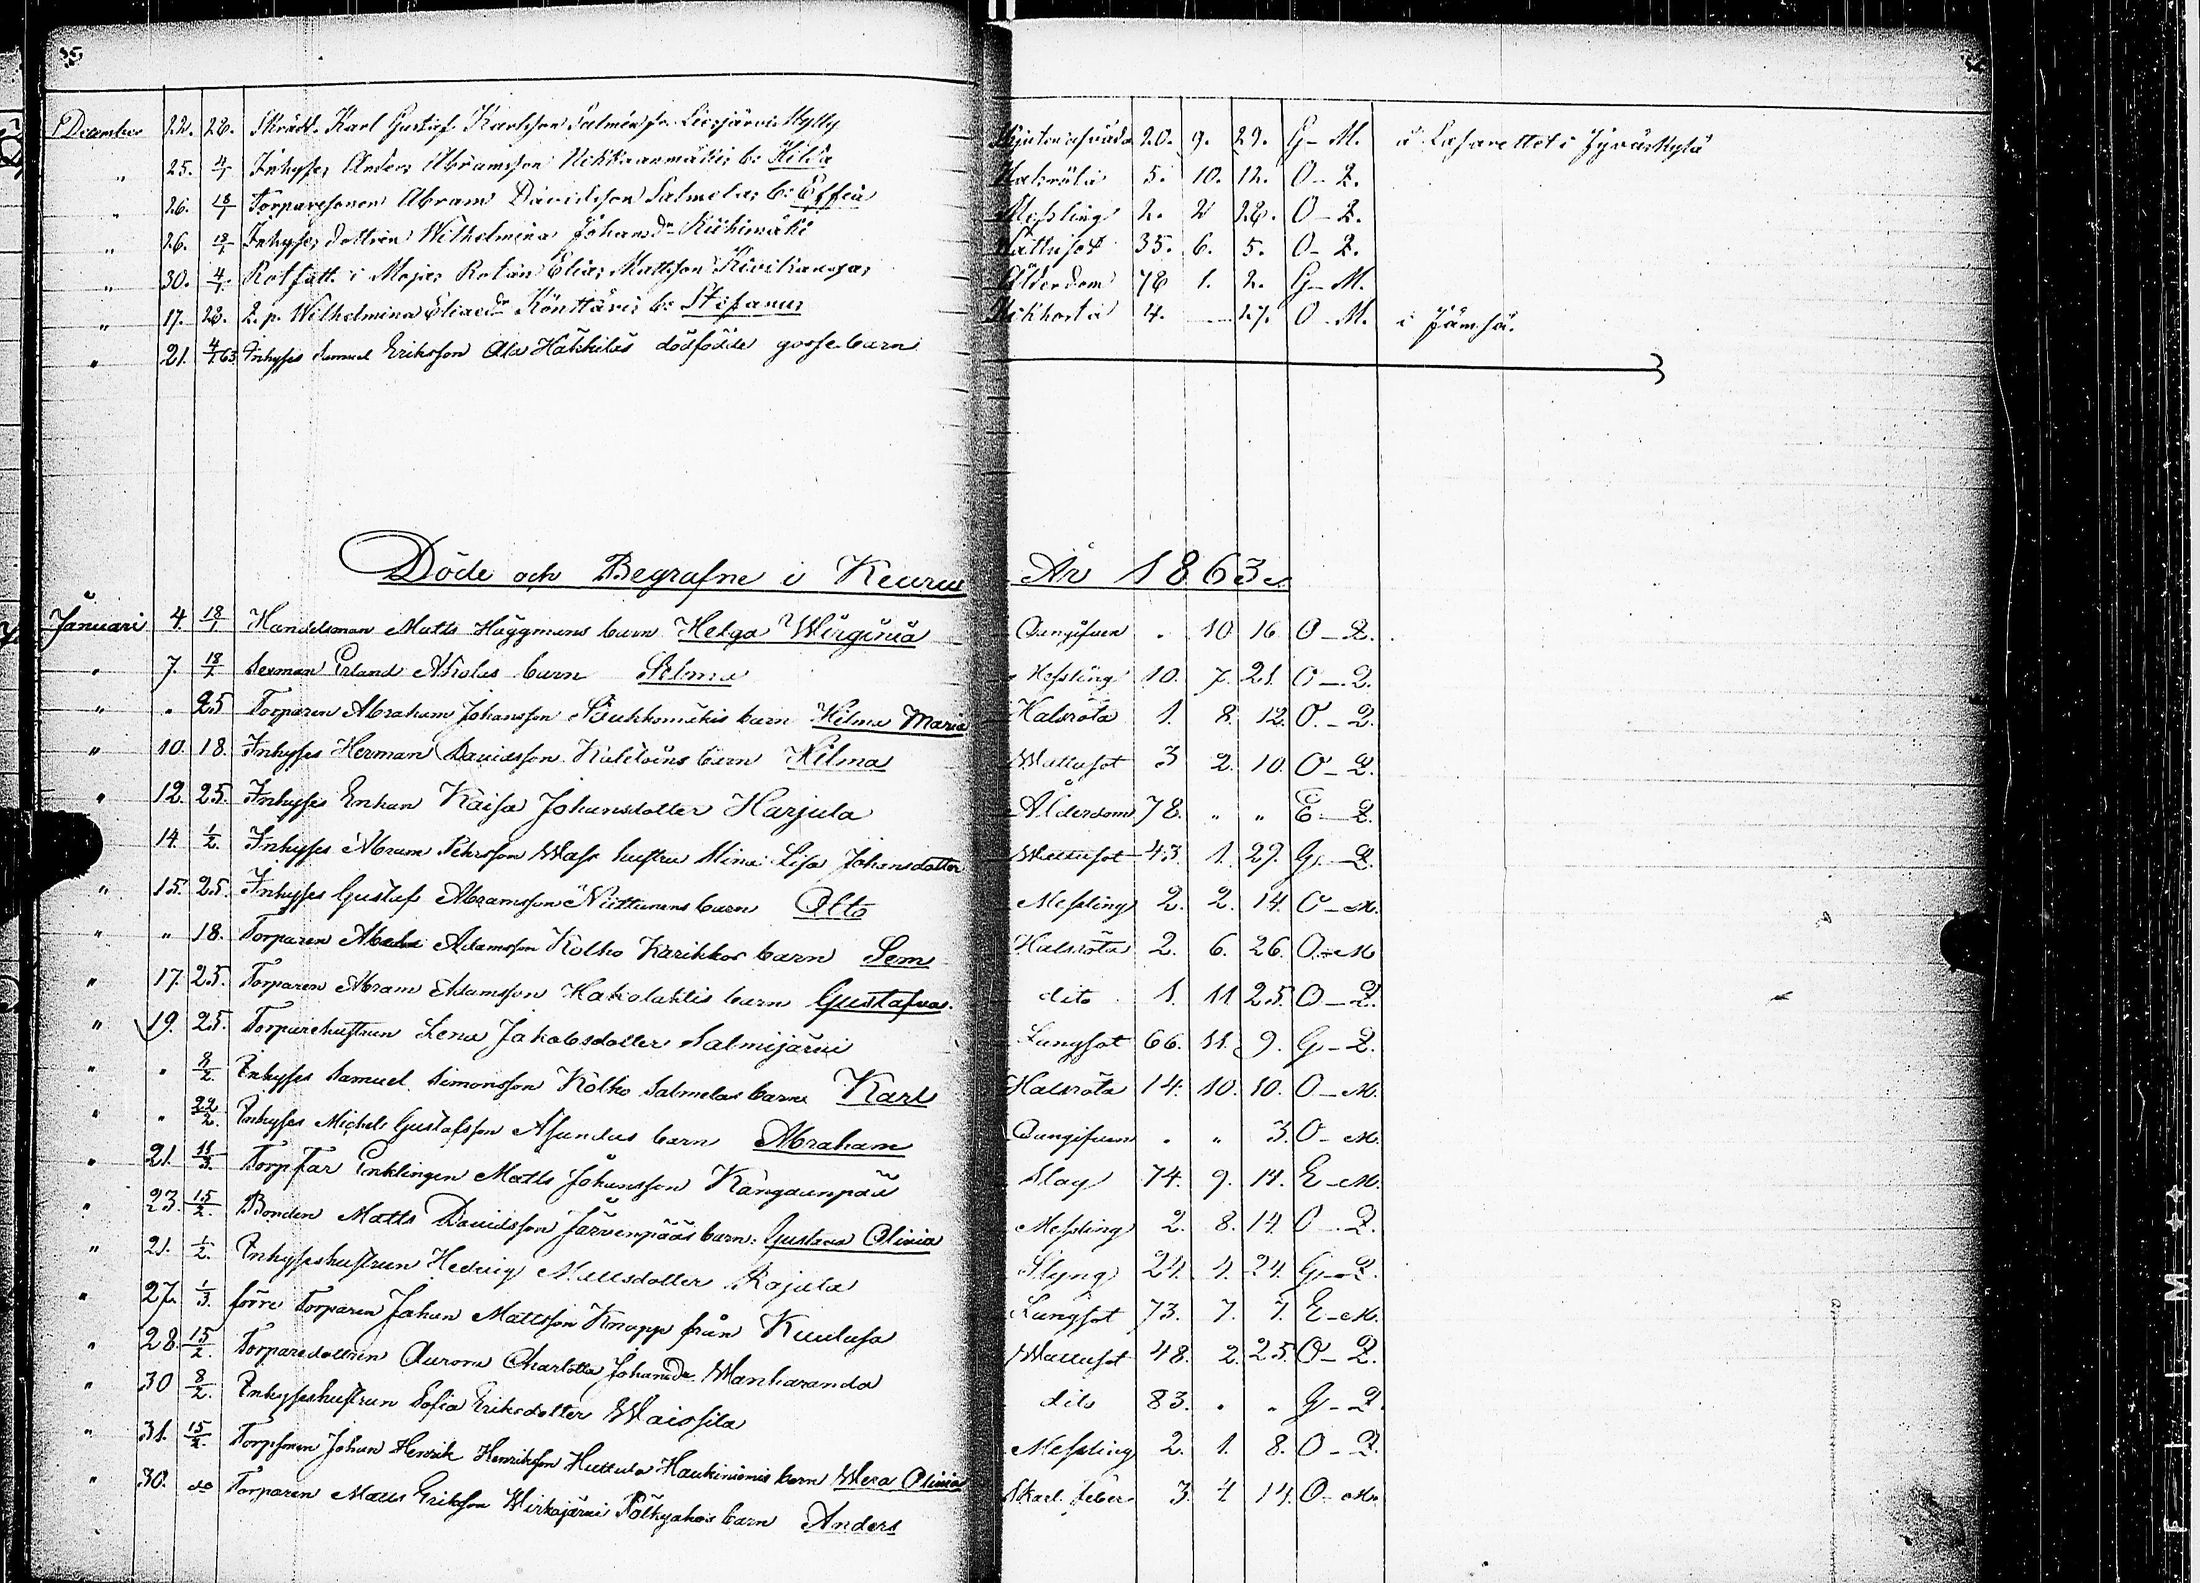 December 22. 28. Skrädd. Karl Gustaf Karlsson Salmén fr. Liesjärvi Mylly 20. 9. 29. G - M. å Lasarettet i Jyväskylä
" 25. 4/1 Inhyses Anders Abramsson b: Hilda Halsröta 5. 10. 12. O - Q.
" 26. 18/1 Torparesonen Abram Davidsson Salmelas b: Messling 2. 2 28. O - Q.
" 26. 18/1 Inhyses dottren Wilhelmina Johansdr Riihimäki Wattusot 35. 6. 5. O - Q.
" 30. 4/1 Rotfatt. i Rotan Elias Mattsson Kivikangas Ålderdom 78 1. 2. G - M.
" 17. 28. Q. p. Wilhelmina Eliaedr b: Stefanus Kikhosta 4. 17. O - M. i Jämsä.
" 21. 4/1 63 Inhyses Samuel Eriksson Ala Häkkiläs dödfödde gossebarn
Döde och Begrafne i Keuru År 1863.
Januari 4. 18/1 Handelsman Matts Häggmans barn Helga Wirginia Qungifven . 10 16 O - Q.
" 7. 18/1 Sexman Erland Aholas barn Selma Messling 10. 7. 21. O - Q.
" " 25 Torparen Abraham Johansson barn Hilma Maria Halsröta 1. 8. 12. O - Q.
" 10. 18. Inhyses Herman Davidsson barn Hilma Wattusot 3 2. 10. O - Q.
" 12. 25. Inhyses Enkan Kaisa Johansdotter Harjula Ålderdom 78. " " E - Q.
14. 1/2. Inhyses Abram Pehrsson hustru Mina Lisa Johansdotter Wattusot 43. 1. 29. G - Q.
" 15. 25. Inhyses Gustaf Abramsson Niittunens barn Otto Messling 2. 2. 14. O - M.
" " 18. Torparen Adamsson Kolho Karikkos barn Sem Halsröta 2. 6. 26. O - M
" 17. 25. Torparen Abram Adamsson Hakolahtis barn Gustafva. dito 1. 11 25. O - Q.
" 19. 25. Torparehustrun Lena Jakobsdotter Salmijärvi Lungsot 66. 11. 9. G - Q.
" " 8/2. Inhyses Samuel Simonsson Kolho Salmelas barn Karl Halsröta 14. 10. 10. O - M.
" " 22/2. Inhyses Michel Gustafsson Asundas barn Abraham Qungifven . " 3. O - M.
" 21. 11/3. Torpfar Enklingen Matts Johansson Kangaanpää Slag 74. 9. 14. E - M.
" 23. 15/2. Bonden Matts Davidsson Järvenpääs barn: Gustava Olivia Messling 2. 8. 14. O - Q.
" 21. 1/2. Inhyseshustrun Hedvig Mattsdotter Rajula Styng 24. 4. 24. G - Q.
" 27. 1/3. förre Torparen Johan Mattsson Knapp från Kuulasa Lungsot 73. 7. 7. E - M.
" 28. 15/2. Torparedottren Aurora Charlotta Johansdr. Wanharanda Wattusot 48. 2. 25. O - Q.
" 30 8/2. Inhyseshustrun Sofia Eriksdotter dito 83. . " G - Q.
" 31. 15/2. Torpsonen Johan Henrik Henriksson Huttula Haukiniemis barn Wera Olivia Messling 2. 1. 8. O - Q.
" 30. do Torparen Matts Eriksson Wirkajärvi Pölkyahos barn Anders Skarl. feber 3. 4 14. O - M.